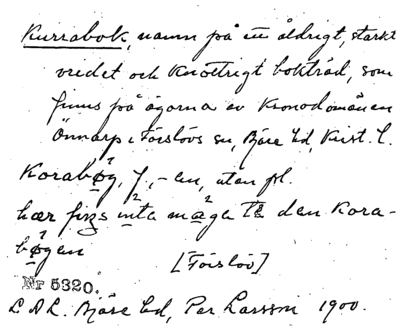 Kurrabok, namn på ett åldrigt, starkt
vredet och knottrigt bokträd, som
finns på ägorna av Kronodomänen
Önnarp i Förslövs sn, Bjäre hd, Krist. l.
Korabǫg, f, -en, utan pl.
hær fiŋs inta maga tɛ den Kora-
bǫgen
[Förslöv]
Nr 5320.
L.A.L. Bjäre hd, Per Larsson 1900.